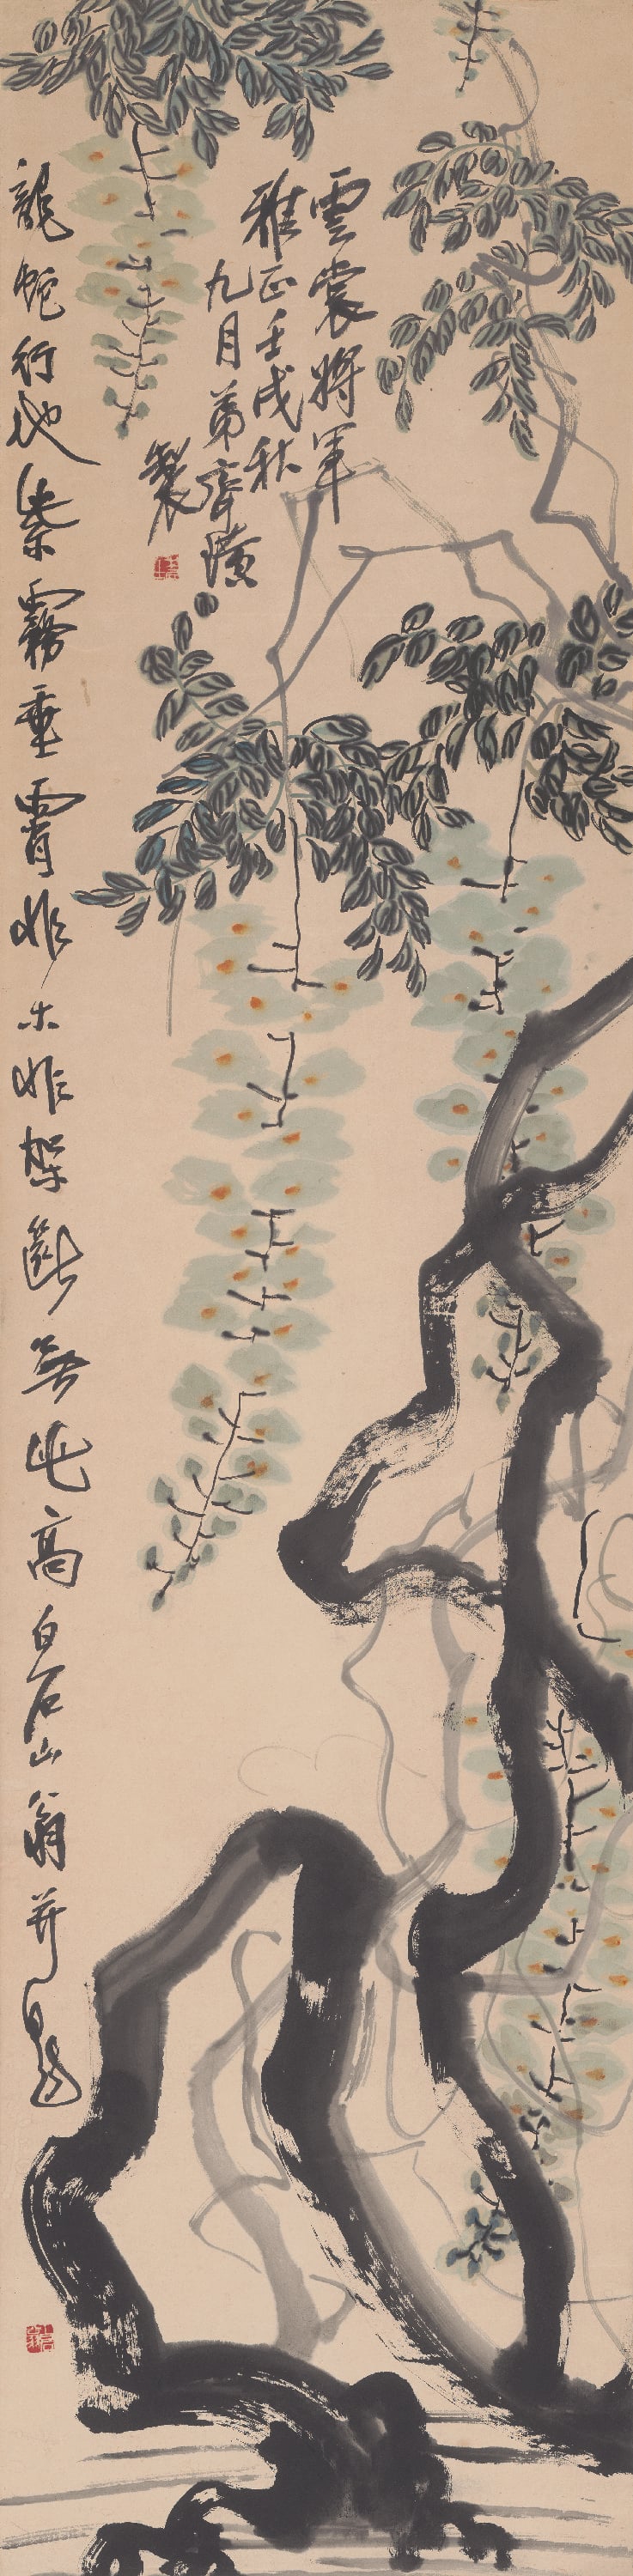 雲裳將軍
雅正壬戌秋
九月弟齊璜
製
龍蛇行地紫霧垂霄非木非架斷無此高白石山翁并題